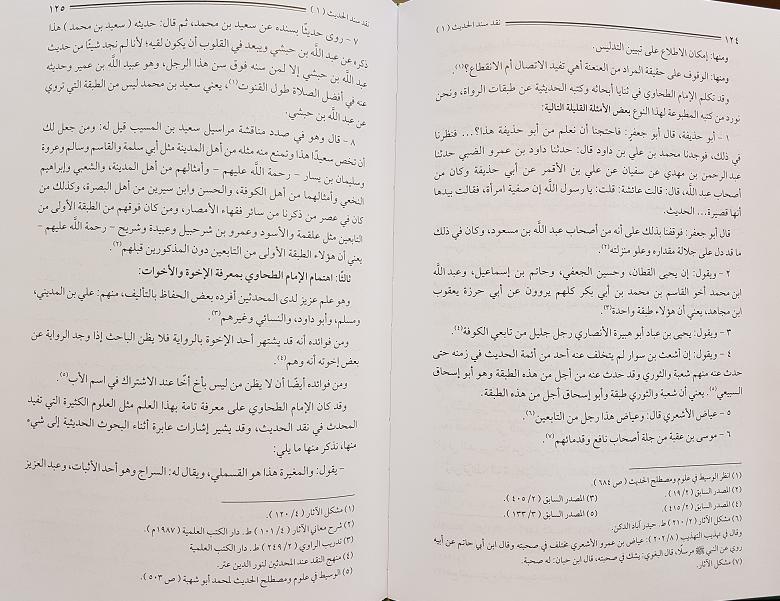 ١٢٤
نقد سند الحديث (١)
ومنها: إمكان الاطلاع على تبيين التدليس.
ومنها: الوقوف على حقيقة المراد من العنعنة أهي تفيد الاتصال أم الانقطاع؟(١).
وقد تكلم الإمام الطحاوي في ثنايا أبحاثه وكتبه الحديثية عن طبقات الرواة، ونحن
نورد من كتبه المطبوعة لهذا النوع بعض الأمثلة القليلة التالية:
١ - أبو حذيفة، قال أبو جعفر: فاحتجنا أن نعلم من أبو حذيفة هذا؟... فنظرنا
في ذلك، فوجدنا محمد بن علي بن داود قال: حدثنا داود بن عمرو الضبي حدثنا
عبد الرحمن بن مهدي عن سفيان عن علي بن الأقمر عن أبي حذيفة وكان من
أصحاب عبد الله، قال: قالت عائشة: قلت: يا رسول الله إن صفية امرأة، فقالت بيدها
أنها قصيرة... الحديث.
قال أبو جعفر: فوقفنا بذلك على أنه من أصحاب عبد الله بن مسعود، وكان في ذلك
ما قد دل على جلالة مقداره وعلو منزلته(٢).
٢ - ويقول: إن يحيى القطان، وحسين الجعفي، وحاتم بن إسماعيل، وعبد الله
ابن محمد أخو القاسم بن محمد بن أبي بكر كلهم يروون عن أبي حرزة يعقوب
ابن مجاهد، يعني أن هؤلاء طبقة واحدة(٣).
٣ - ويقول: يحيى بن عباد أبو هبيرة الأنصاري رجل جليل من تابعي الكوفة(٤).
٤ - ويقول: إن أشعث بن سوار لم يتخلف عنه أحد من أئمة الحديث في زمنه حتى
حدث عنه منهم شعبة والثوري وقد حدث عنه من أجل من هذه الطبقة وهو أبو إسحاق
السبيعي(٥). يعني أن شعبة والثوري طبقة وأبو إسحاق أجل من هذه الطبقة.
٥ - عياض الأشعري قال: وعياض هذا رجل من التابعين(٦).
٦ - موسى بن عقبة من جلة أصحاب نافع وقدمائهم(٧).
(١) انظر الوسيط في علوم ومصطلح الحديث (ص ٦٨٤).
(٢) المصدر السابق (٢/ ١٩).
(٣) المصدر السابق (٢/ ٤٠٥).
(٤) المصدر السابق (٢/ ٤١٥).
(٥) المصدر السابق (٣/ ١٣٣).
(٦) مشكل الآثار (٢/ ٢١٠) ط. حيدر آباد الدكن.
وقال في تهذيب التهذيب (٨/ ٢٠٢): عياض بن عمرو الأشعري مختلف في صحبته وقال ابن أبي حاتم عن أبيه
روى عن النبي ﷺ مرسلًا، قال البغوي: يشك في صحبته، قال ابن حبان: له صحبة.
(٧) مشكل الآثار.
نقد سند الحديث (١)
١٢٥
٧ - روى حديثًا بسنده عن سعيد بن محمد، ثم قال: حديثه (سعيد بن محمد) هذا
ذكره عن عبد الله بن حبشي ويبعد في القلوب أن يكون لقيه؛ لأنا لم نجد شيئًا من حديث
عبد الله بن حبشي إلا لمن سنه فوق سن هذا الرجل، وهو عبيد الله بن عمير وحديثه
عنه في أفضل الصلاة طول القنوت(١)، يعني سعيد بن محمد ليس من الطبقة التي تروي
عن عبد الله بن حبشي.
٨ - قال وهو في صدد مناقشة مراسيل سعيد بن المسيب قيل له: ومن جعل لك
أن تخص سعيدًا هذا وتمنع منه مثله من أهل المدينة مثل أبي سلمة والقاسم وسالم وعروة
وسليمان بن يسار - رحمة الله عليهم - وأمثالهم من أهل المدينة، والشعبي وإبراهيم
النخعي وأمثالهما من أهل الكوفة، والحسن وابن سيرين من أهل البصرة، وكذلك من
كان في عصر من ذكرنا من سائر فقهاء الأمصار، ومن كان فوقهم من الطبقة الأولى من
التابعين مثل علقمة والأسود وعمرو بن شرحبيل وعبيدة وشريح - رحمة الله عليهم -
يعني أن هؤلاء الطبقة الأولى من التابعين دون المذكورين قبلهم(٢).
ثالثًا: اهتمام الإمام الطحاوي بمعرفة الإخوة والأخوات:
وهو علم عزيز لدى المحدثين أفرده بعض الحفاظ بالتأليف، منهم: علي بن المديني،
ومسلم، وأبو داود، والنسائي وغيرهم(٣).
ومن فوائده أنه قد يشتهر أحد الإخوة بالرواية فلا يظن الباحث إذا وجد الرواية عن
بعض إخوته أنه وهم(٤).
ومن فوائده أيضًا أن لا يظن من ليس بأخ أخًا عند الاشتراك في اسم الأب(٥).
وقد كان الإمام الطحاوي على معرفة تامة بهذا العلم مثل العلوم الكثيرة التي تفيد
المحدث في نقد الحديث، وقد يشير إشارات عابرة أثناء البحوث الحديثية إلى شيء
منها، نذكر منها ما يلي:
- يقول: والمغيرة هذا هو القسملي، ويقال له: السراج وهو أحد الأثبات، وعبد العزيز
(١) مشكل الآثار (٤/ ١٢٠).
(٢) شرح معاني الآثار (٤/ ١٠١) ط. دار الكتب العلمية (١٩٨٧م).
(٣) تدريب الراوي (٢/ ٢٤٩) ط. دار الكتب العلمية
(٤) منهج النقد عند المحدثين لنور الدين عتر.
(٥) الوسيط في علوم ومصطلح الحديث لمحمد أبو شهبة (ص ٥٠٣).